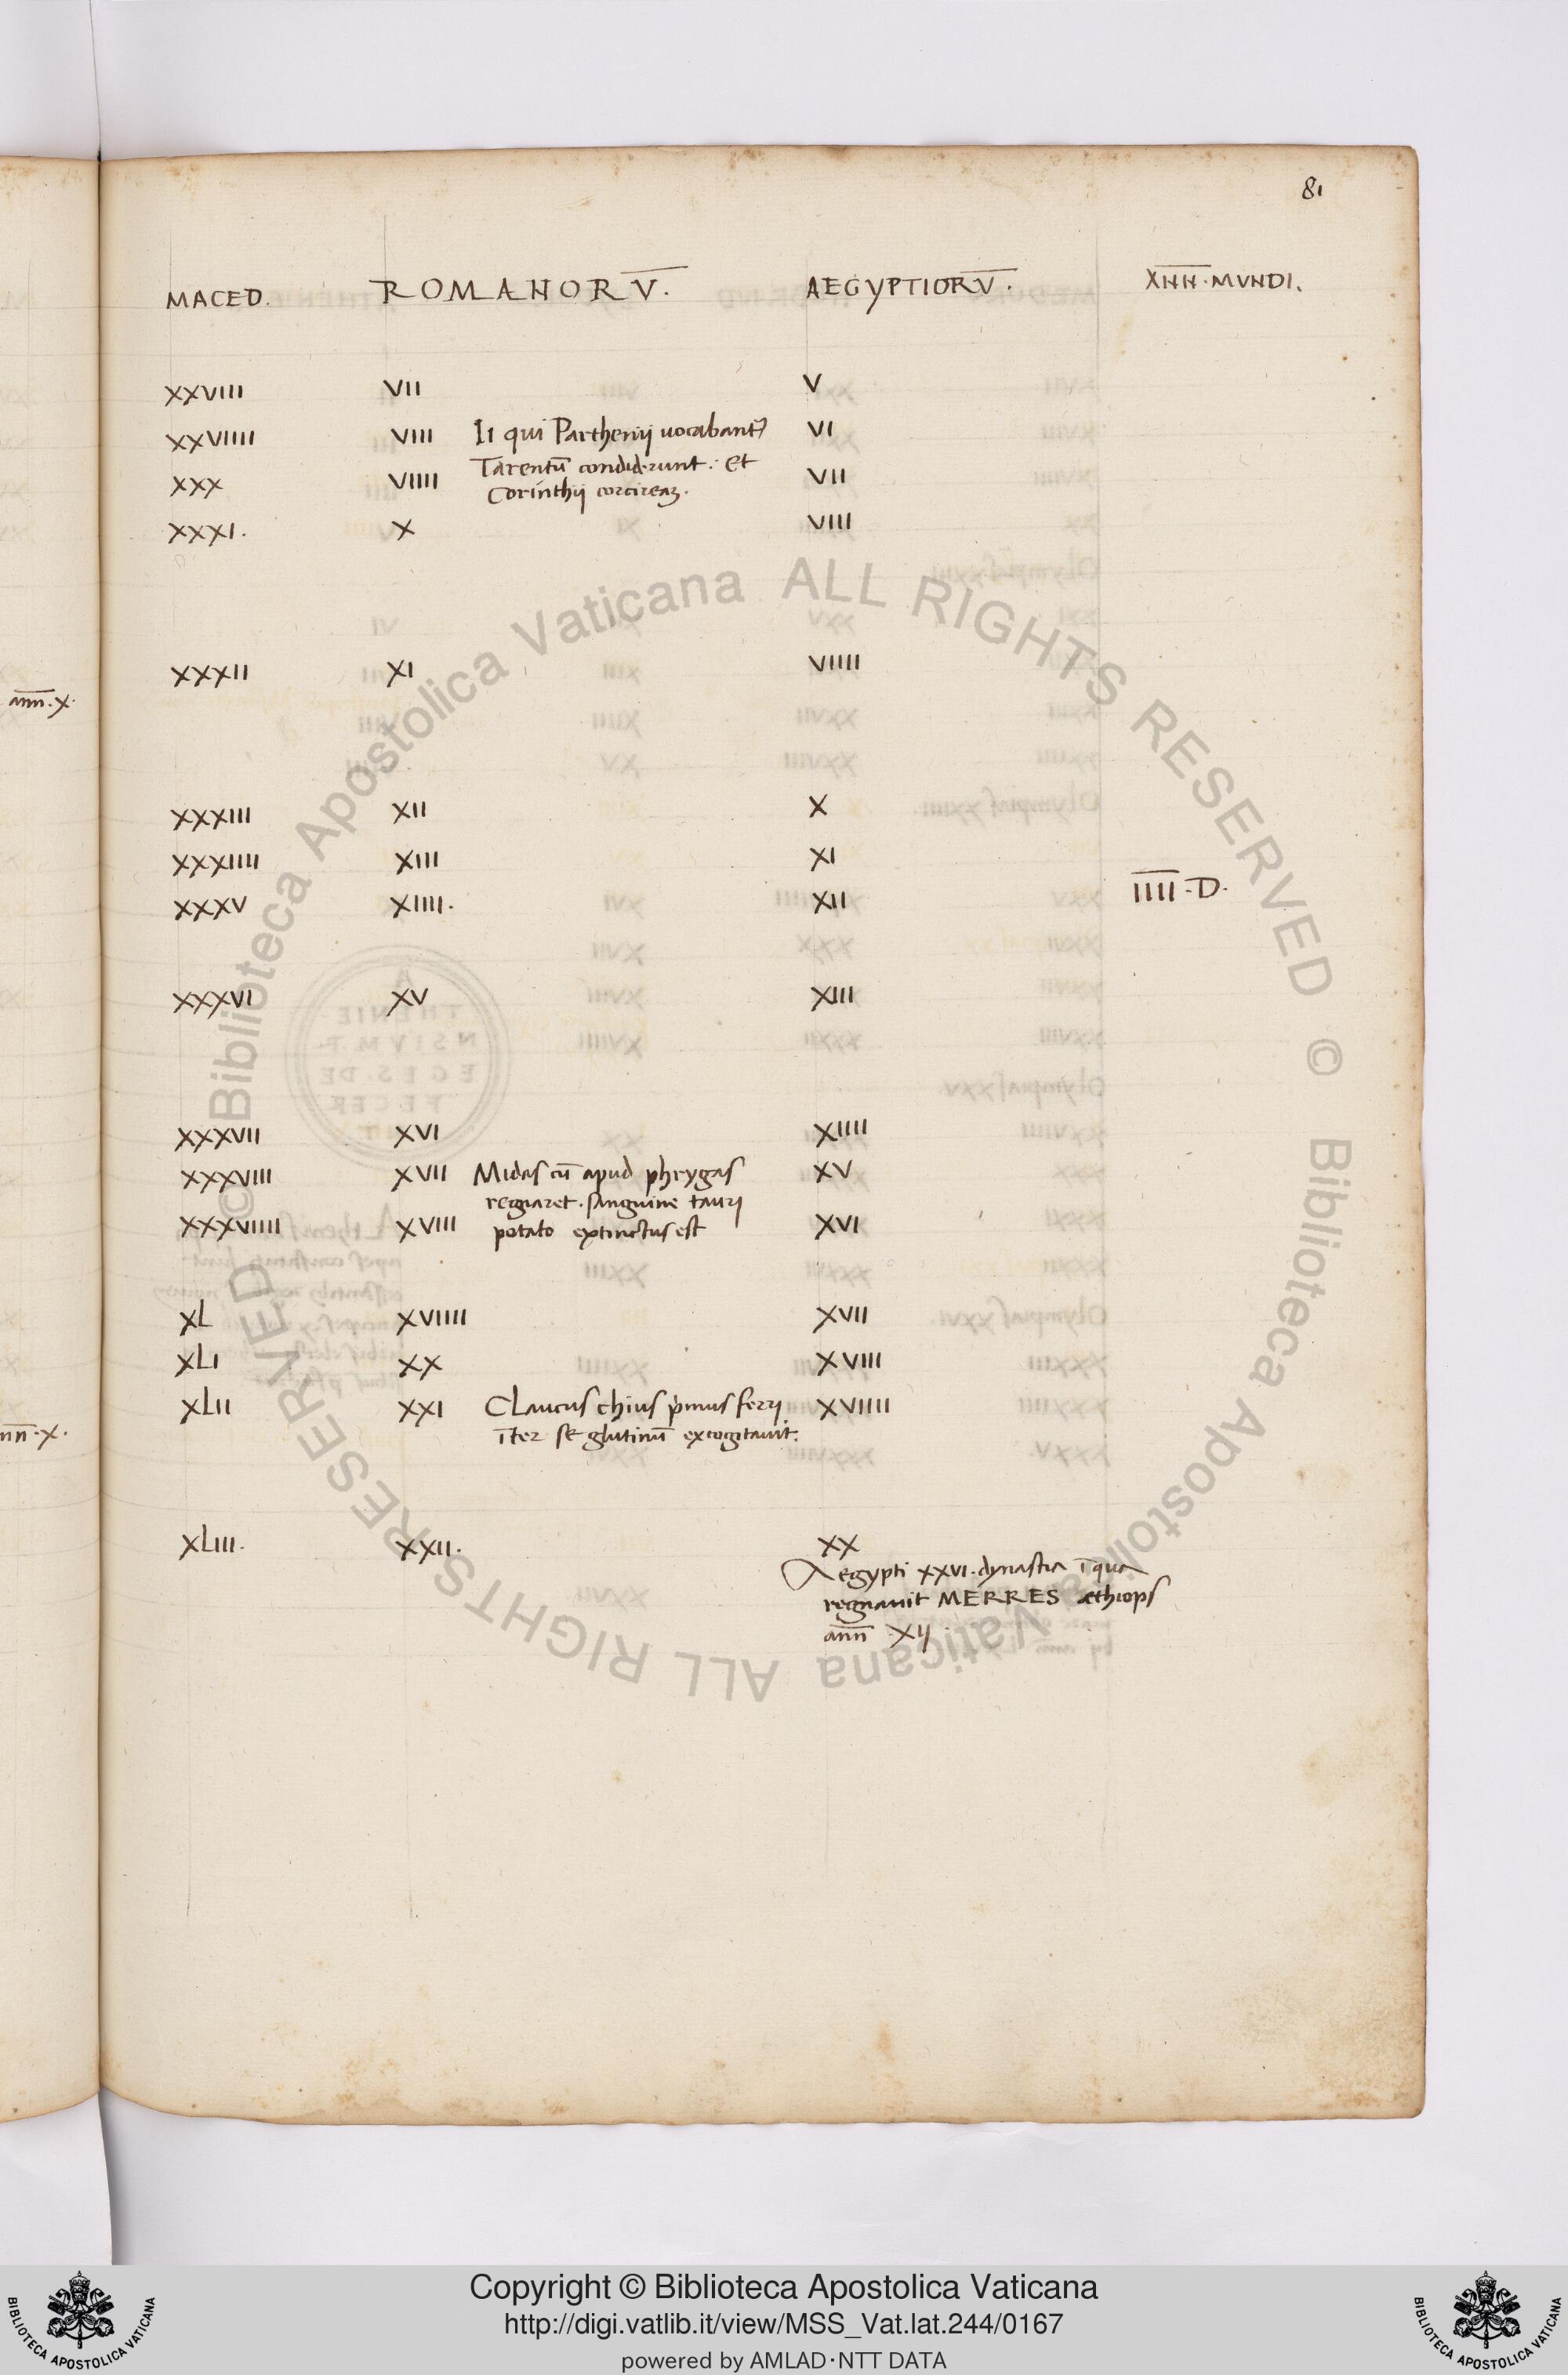 81
MACED. ROMANORV̅. AEGYPTIORV̅. XN̅N̅·MVNDI.
XXVIII VII V
XXVIIII VIII Ii qui Parthenij uocabant᷑ VI
XXX VIIII Tarentū condiderunt: et VII
Corinthij corcirea᷑.
XXXI. X VIII
XXXII XI VIIII
ann̅·X·
XXXIII XII X
XXXIIII XIII XI
XXXV XIIII. XII I̅I̅I̅I̅·D·
XXXVI XV XIII
XXXVII XVI XIIII
XXXVIII XVII Midas cū apud phrygas XV
regnaret·sanguine tauri
XXXVIIII XVIII potato extinctus est XVI
XL XVIIII XVII
XLI XX XVIII
XLII XXI Glaucus chius pͥmus ferri XVIIII
īter se glutinū excogitauit.
nn̅·X·
XLIII. XXII. XX
Aegypti XXVI·dynastia ī qua
regnauit MERRES æthiops
ann̅ ·XIJ
© Biblioteca Apostolica Vaticana ALL RIGHTS RESERVED © Biblioteca Apostolica Vaticana ALL RIGHTS RESERVED
BIBLIOTECA APOSTOLICA VATICANA
Copyright © Biblioteca Apostolica Vaticana
http://digi.vatlib.it/view/MSS_Vat.lat.244/0167
powered by AMLAD·NTT DATA
BIBLIOTECA APOSTOLICA VATICANA